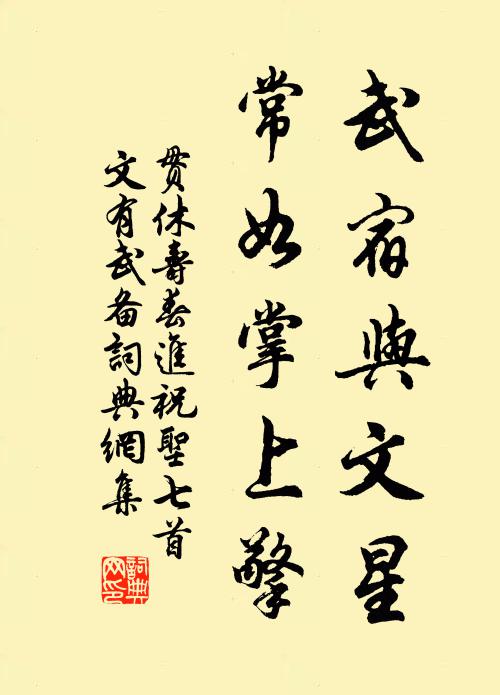 武宿與文星
常如掌上擎
貫休壽春進祝聖七首
文有武备詞典網集
詞典
网印